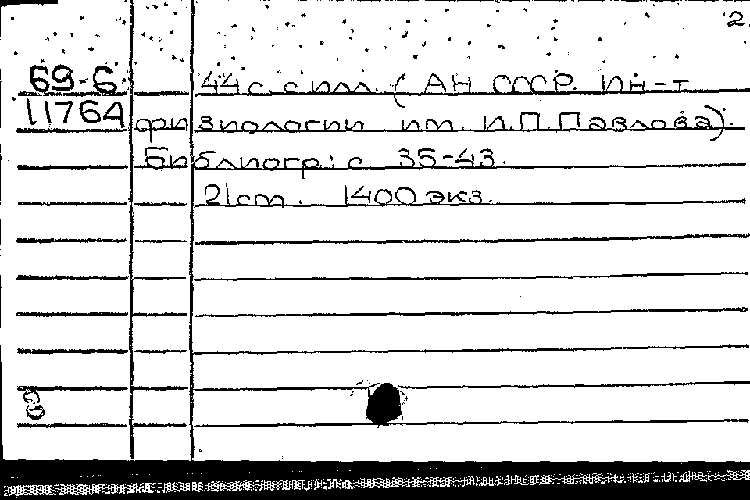 2
69-6 44 с с илл. (АН СССР. Ин-т
11764 физиологии им. И.П.Павлова).
Библиогр: с 35-43.
21 cm. 1400 экз.